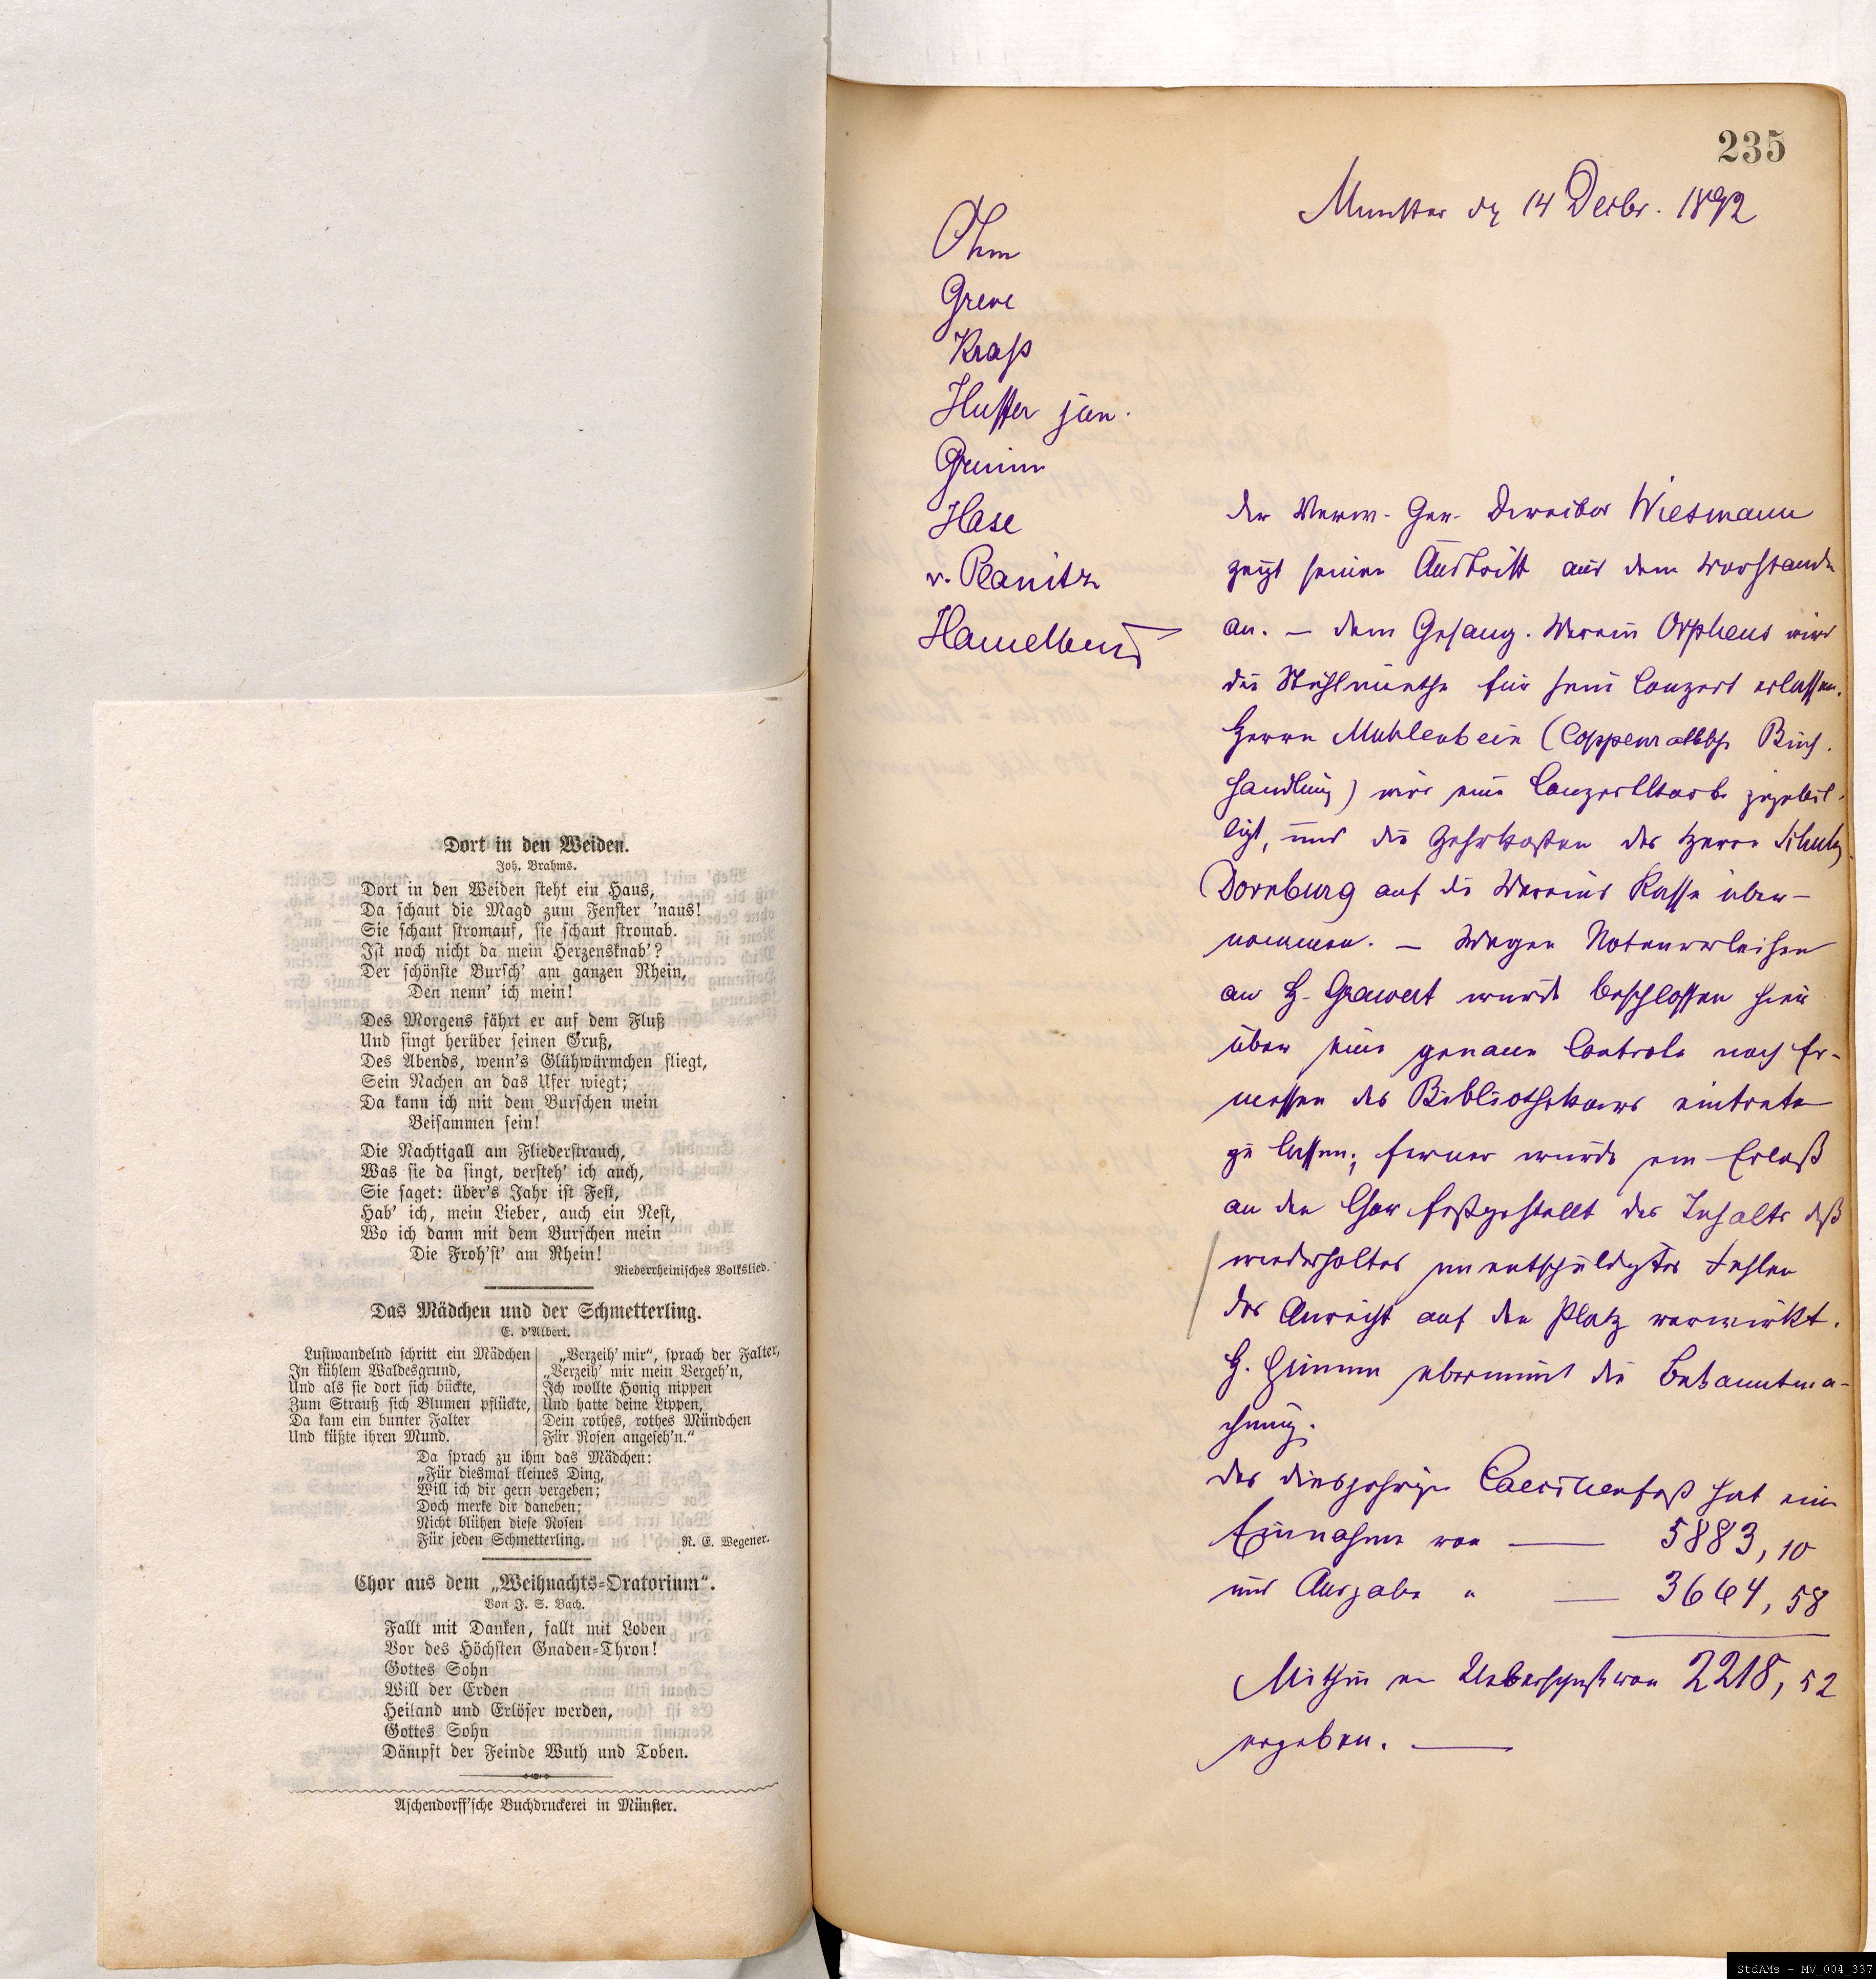 Dort in den Weiden.
Joh. Brahms.
Dort in den Weiden steht ein Haus,
Da schaut die Magd zum Fenster 'naus!
Sie schaut stromauf, sie schaut stromab.
Ist noch nicht da mein Herzensknab'?
Der schönste Bursch' am ganzen Rhein,
Den nenn' ich mein!
Des Morgens fährt er auf dem Fluß
Und singt herüber seinen Gruß,
Des Abends, wenn's Glühwürmchen fliegt,
Sein Nachen an das Ufer wiegt;
Da kann ich mit dem Burschen mein
Beisammen sein!
Die Nachtigall am Fliederstrauch,
Was sie da singt, versteh' ich auch,
Sie saget: über's Jahr ist Fest,
Hab' ich, mein Lieber, auch ein Nest,
Wo ich dann mit dem Burschen mein
Die Froh'st' am Rhein!
Niederrheinisches Volkslied.
Das Mädchen und der Schmetterling.
E. d'Albert.
Lustwandelnd schritt ein Mädchen
In kühlem Waldesgrund,
Und als sie dort sich bückte,
Zum Strauß sich Blumen pflückte,
Da kam ein bunter Falter
Und küßte ihren Mund.
„Verzeih' mir“, sprach der Falter,
„Verzeih' mir mein Vergeh'n,
Ich wollte Honig nippen
Und hatte deine Lippen,
Dein rothes, rothes Mündchen
Für Rosen angeseh'n.“
Da sprach zu ihm das Mädchen:
„Für diesmal kleines Ding,
Will ich dir gern vergeben;
Doch merke dir daneben:
Nicht blühen diese Rosen
Für jeden Schmetterling.
R. E. Wegener.
Chor aus dem „Weihnachts-Oratorium“.
Von J. S. Bach.
Fallt mit Danken, fallt mit Loben
Vor des Höchsten Gnaden-Thron!
Gottes Sohn
Will der Erden
Heiland und Erlöser werden,
Gottes Sohn
Dämpft der Feinde Wuth und Toben.
Aschendorff'sche Buchdruckerei in Münster.
235
Munster d 14 Decbr. 1892
Ohm
Greve
Kraß
Hüffer jun.
Grimm
Hase
v. Planitz
Hamelbeck
der Verw. Ger. Schreiber Wiesmann
zeigt seinen Austritt aus dem Vorstande
an. — dem Gesang. Verein Orpheus wird
die Stuhlmiethe für sein Conzert erlassen.
Herrn Muhlenbein (Coppenrathsche Buch-
handlung) wird eine Conzertkarte zugebil-
ligt, und die Fahrkosten des Herrn Schulz
Dornburg auf die Vereins Kasse über-
nommen. — Wegen Notenverleihen
an H. Grawert wurde beschlossen hier
über eine genaue Controle nach Er-
messen des Bibliothekars eintreten
zu lassen; ferner wurde ein Erlaß
an den Chor festgestellt des Inhalts daß
wiederholtes unentschuldigtes Fehlen
das Anrecht auf den Platz verwirkt.
H. Grimm übernimmt die Bekanntma-
chung.
Das diesjahrige Caecilienfest hat eine
Einnahme von — 5883,10
und Ausgabe " — 3664,58
Mithin ein Ueberschuß von 2218,52
ergeben. —
StdAMs - MV_004_337